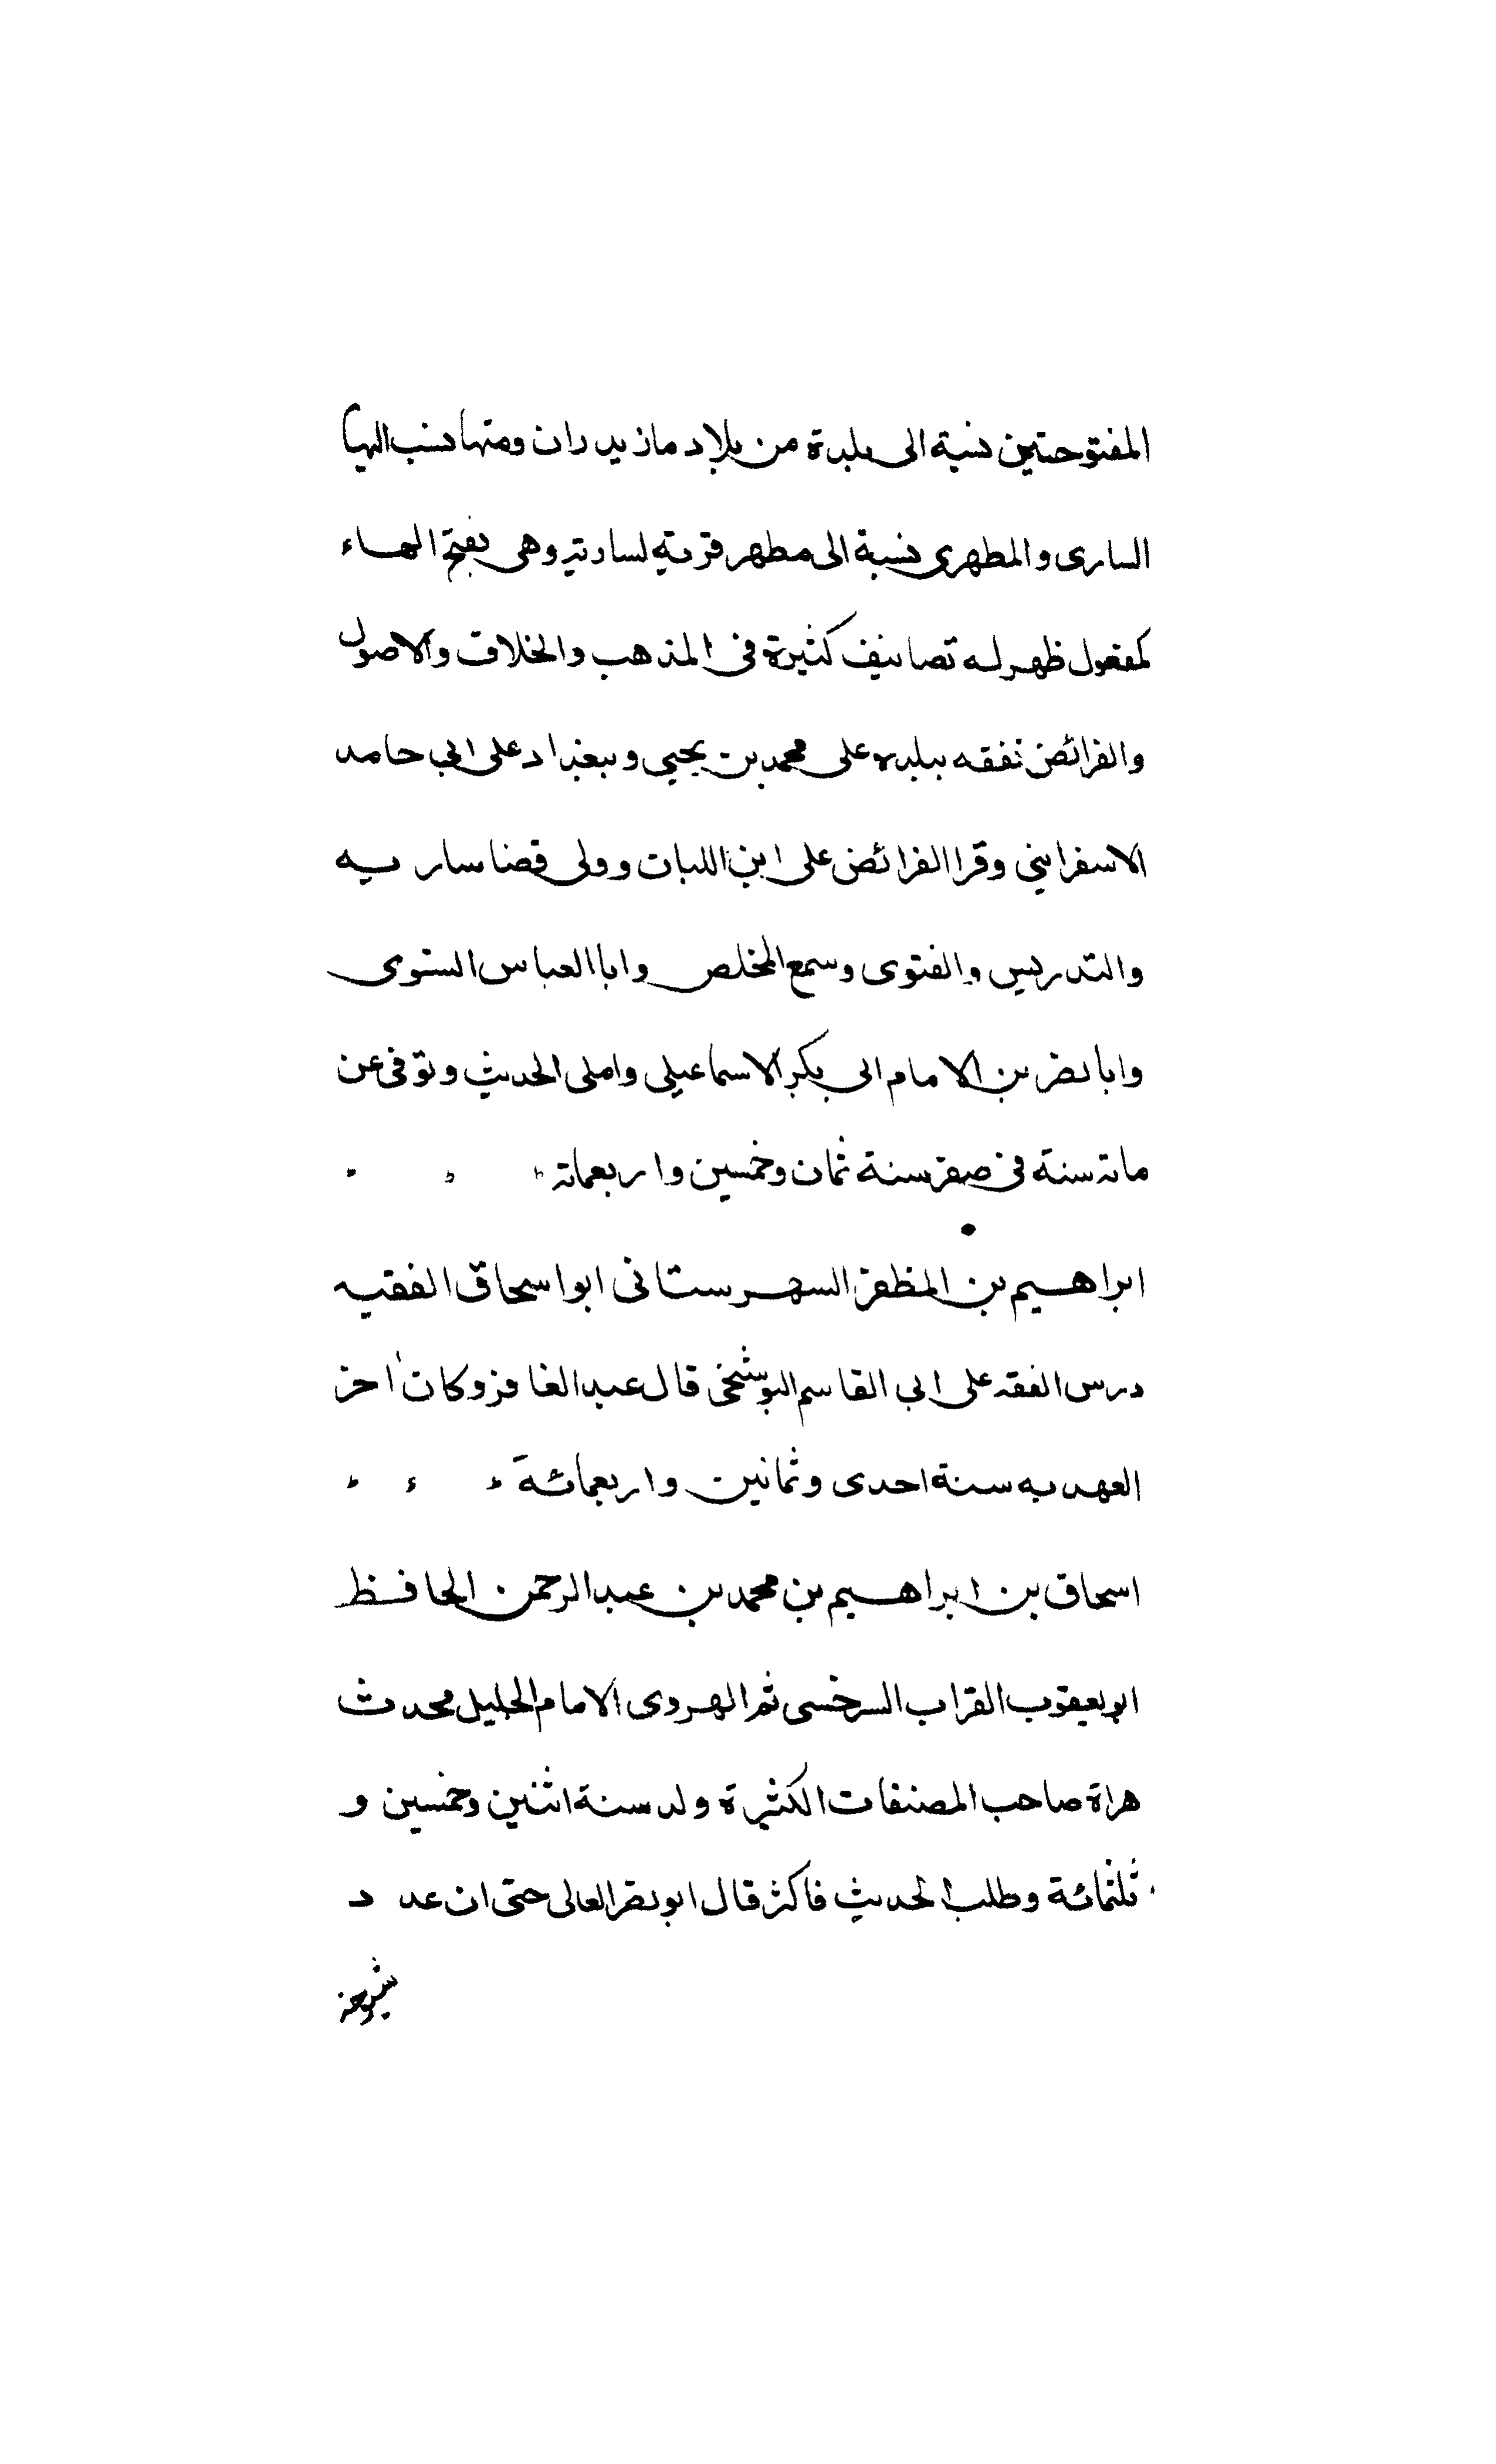 المفتوحتين نسبة الى بلدة من بلاد مازيدران ومنها نسب اليها
السارى والمطهرى نسبة الى مطهر قرية لسارية وهى بفتح الهاء
كمفعول ظهر له تصانيف كثيرة فى المذهب والخلاف والاصول
والفرائض تفقه ببلده على محمد بن يحيى وببغداد على ابى حامد
الاسفراينى وقرا الفرائض على ابن اللبات وولى قضا ساريه
والتدريس والفتوى وسمع المخلص وابا العباس الستوى
وابا نضر بن الامام ابى بكر الاسماعيلى واملى الحديث وتوفى عن
ماتة سنة فى صفر سنة ثمان وخمسين واربعماتة
ابراهيم بن المظفر السهرستانى ابو اسحاق الفقيه
درس الفقه على ابى القاسم البوشنخى قال عبد الغافر وكان اخر
العهد به سنة احدى وثمانين واربعمائة
اسحاق بن ابراهيم بن محمد بن عبد الرحمن الحافظ
ابو يعقوب القراب السرخسى ثم الهروى الامام الجليل محدث
هراة صاحب المصنفات الكثيرة ولد سنة اثنين وخمسين و
ثلثمائة وطلب الحديث فاكثر قال ابو نصر العالى حتى ان عدد
شيوخه